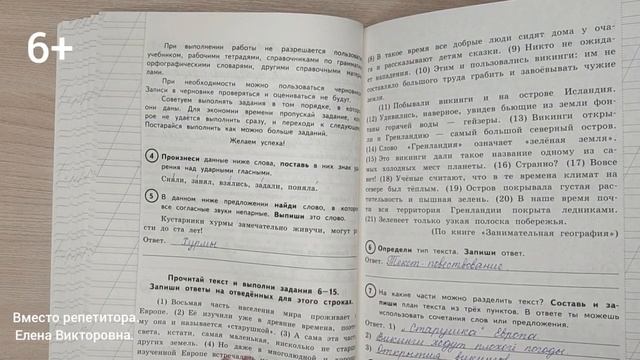 6+
При выполнении работы не разрешается пользова
учебником, рабочими тетрадями, справочниками по граммати
орфографическими словарями, другими справочными матери
лами.
При необходимости можно пользоваться черновик
Записи в черновике проверяться и оцениваться не будут.
Советуем выполнять задания в том порядке, в котор
они даны. Для экономии времени пропускай задание, ко
рое не удаётся выполнить сразу, и переходи к следующе
Постарайся выполнить как можно больше заданий.
Желаем успеха!
4 Произнеси данные ниже слова, поставь в них знак уда
рения над ударными гласными.
Сняли, занял, взялись, задали, поняла.
5 В данном ниже предложении найди слово, в котор
все согласные звуки непарные. Выпиши это слово.
Кустарники хурмы замечательно живучи, могут расти
до ста лет!
Ответ. Хурмы
Прочитай текст и выполни задания 6–15.
Запиши ответы на отведённых для этого строках.
(1) Восьмая часть населения мира проживает в
Европе. (2) Её изучили уже в древние времена, поэто
му она и называется «старушкой». (3) А сама эта часть
света, кстати, самая маленькая, нисколько не старше
других земель. (4) Но даже в многолюдной и хорошо
изученной Европе встречались
Вместо репетитора.
Елена Викторовна.
(8) В такое время все добрые люди сидят дома у оча
га и рассказывают детям сказки. (9) Никто не ожида
ет нападения. (10) Этим и пользовались викинги: им не
составляло большого труда грабить и завоёвывать чужие
земли.
(11) Побывали викинги и на острове Исландия.
(12) Удивились, наверное, увидев бьющие из земли фон
таны горячей воды — гейзеры. (13) Викинги откры
ли и Гренландию — самый большой северный остров.
(14) Слово «Гренландия» означает «зелёная земля».
(15) Это викинги дали такое название одному из са
мых холодных мест планеты. (16) Странно? (17) Вовсе
нет! (18) Учёные считают, что в те времена климат на
севере был тёплым. (19) Остров покрывала густая рас
тительность и пышная зелень. (20) В наше время поч
ти вся территория Гренландии покрыта ледниками.
(21) Зеленеет только узкая полоска побережья.
(По книге «Занимательная география»)
6 Определи тип текста. Запиши ответ.
Ответ. Текст-повествование
7 На какие части можно разделить текст? Составь и за
пиши план текста из трёх пунктов. В ответе ты можешь
использовать сочетания слов или предложения.
Ответ. 1) "Старушка" Европа
2) Викинги ждут плохой погоды
3) Открытия викингов